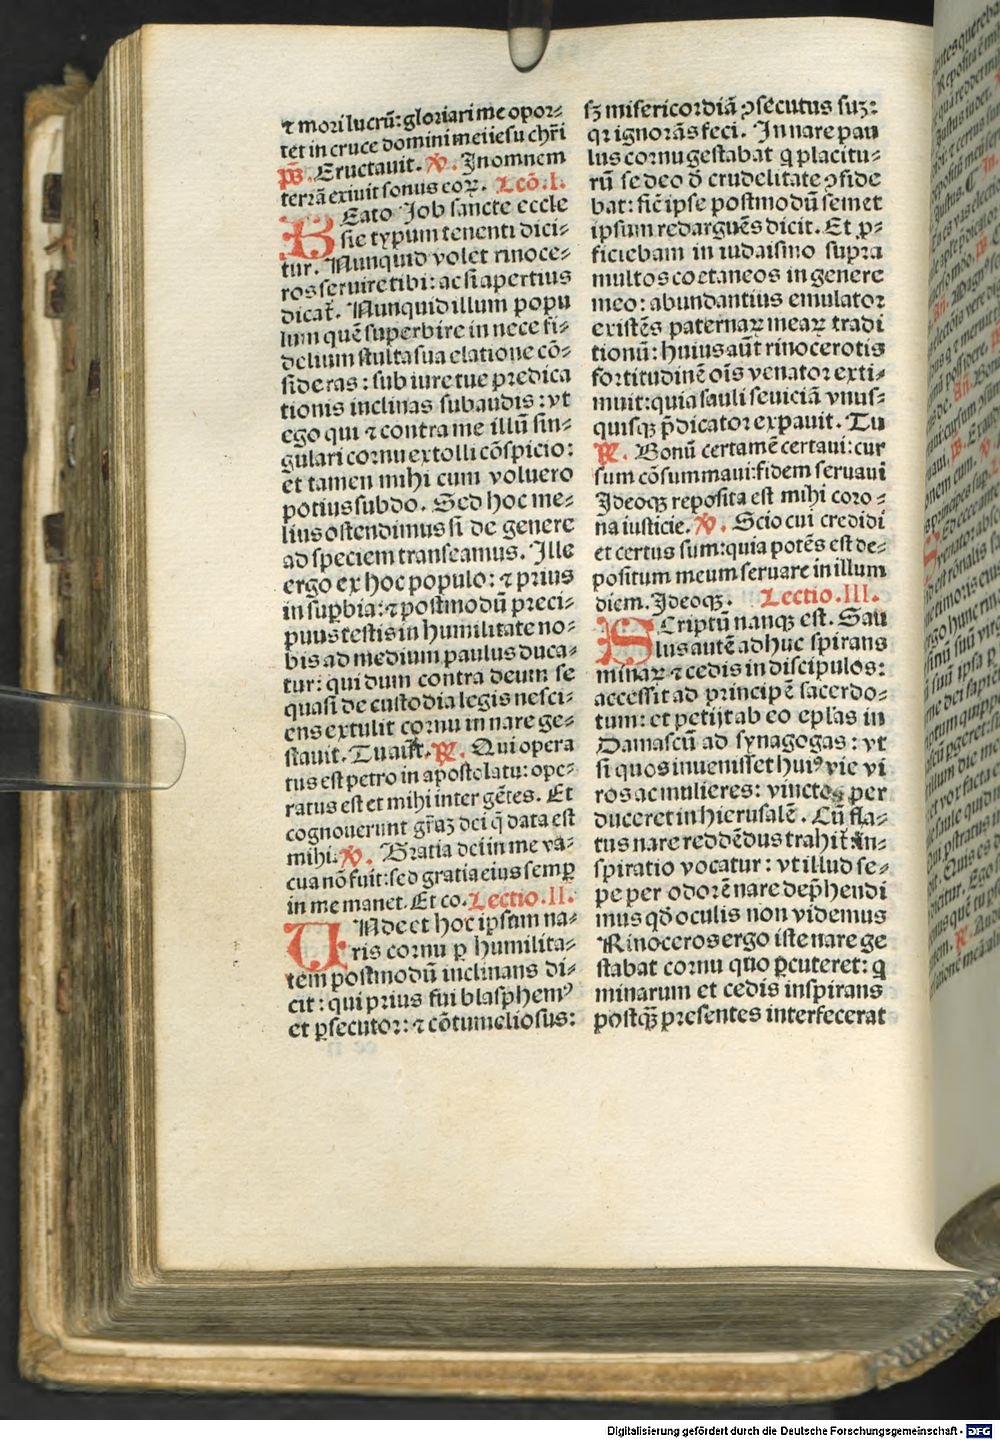 ⁊ mori lucrū: gloriari me opor⸗
tet in cruce domini mei iesu chr̄i
p̄s. Eructauit. v̄. In omnem
terrā exiuit sonus eoꝝ. Lcō. I.
BEato Job sancte eccle
sie typum tenenti dici⸗
tur. Nunquid volet rinoce⸗
ros seruire tibi: ac si apertius
dicat̄. Nunquid illum popu
lum quē superbire in nece fi⸗
delium stulta sua elatione cō⸗
sideras: sub iure tue predica
tionis inclinas subaudis: vt
ego qui ⁊ contra me illū sin⸗
gulari cornu extolli cōspicio:
et tamen mihi cum voluero
potius subdo. Sed hoc me⸗
lius ostendimus si de genere
ad speciem transeamus. Ille
ergo ex hoc populo: ⁊ prius
in suꝑbia: ⁊ postmodū preci⸗
puus testis in humilitate no⸗
bis ad medium paulus duca⸗
tur: qui dum contra deum se
quasi de custodia legis nesci⸗
ens extulit cornu in nare ge⸗
stauit. Tu aūt. ꝶ. Qui opera
tus est petro in apostolatu: ope⸗
ratus est et mihi inter gētes. Et
cognouerunt gr̄aꝫ dei q̄ data est
mihi. v̄. Gratia dei in me va⸗
cua nō fuit: sed gratia eius semꝑ
in me manet. Et co. Lectio. II.
UNde et hoc ipsum na⸗
ris cornu ꝑ humilita⸗
tem postmodū inclinans di⸗
cit: qui prius fui blasphemꝰ
et ꝑsecutor: ⁊ cōtumeliosus:
sꝫ misericordiā ꝯsecutus suꝫ:
qꝛ ignorās feci. In nare pau
lus cornu gestabat q̄ placitu⸗
rū se deo d̄ crudelitate ꝯfide
bat: sic̄ ipse postmodū semet
ipsum redarguēs dicit. Et ꝓ⸗
ficiebam in iudaismo supra
multos coetaneos in genere
meo: abundantius emulator
existēs paternaꝝ meaꝝ tradi
tionū: huius aūt rinocerotis
fortitudinē oīs venator exti⸗
muit: quia sauli seuiciā vnus⸗
quisqꝫ p̄dicator expauit. Tu
ꝶ. Bonū certamē certaui: cur
sum cōsummaui: fidem seruaui
Ideoqꝫ reposita est mihi coro⸗
na iusticie. v̄. Scio cui credidi
et certus sum: quia potēs est de⸗
positum meum seruare in illum
diem. Ideoqꝫ. Lectio. III.
SCriptū nanqꝫ est. Sau
lus autē adhuc spirans
minaꝝ ⁊ cedis in discipulos:
accessit ad principē sacerdo⸗
tum: et petijt ab eo ep̄las in
Damascū ad synagogas: vt
si quos inuenisset huiꝰ vie vi
ros ac mulieres: vinctos per
duceret in hierusalē. Cū fla⸗
tus nare reddēdus trahit̄: in⸗
spiratio vocatur: vt illud se⸗
pe per odorē nare dep̄hendi
mus qd̄ oculis non videmus
Rinoceros ergo iste nare ge
stabat cornu quo ꝑcuteret: q
minarum et cedis inspirans
postqꝫ̄ presentes interfecerat
Digitalisierung gefördert durch die Deutsche Forschungsgemeinschaft - DFG